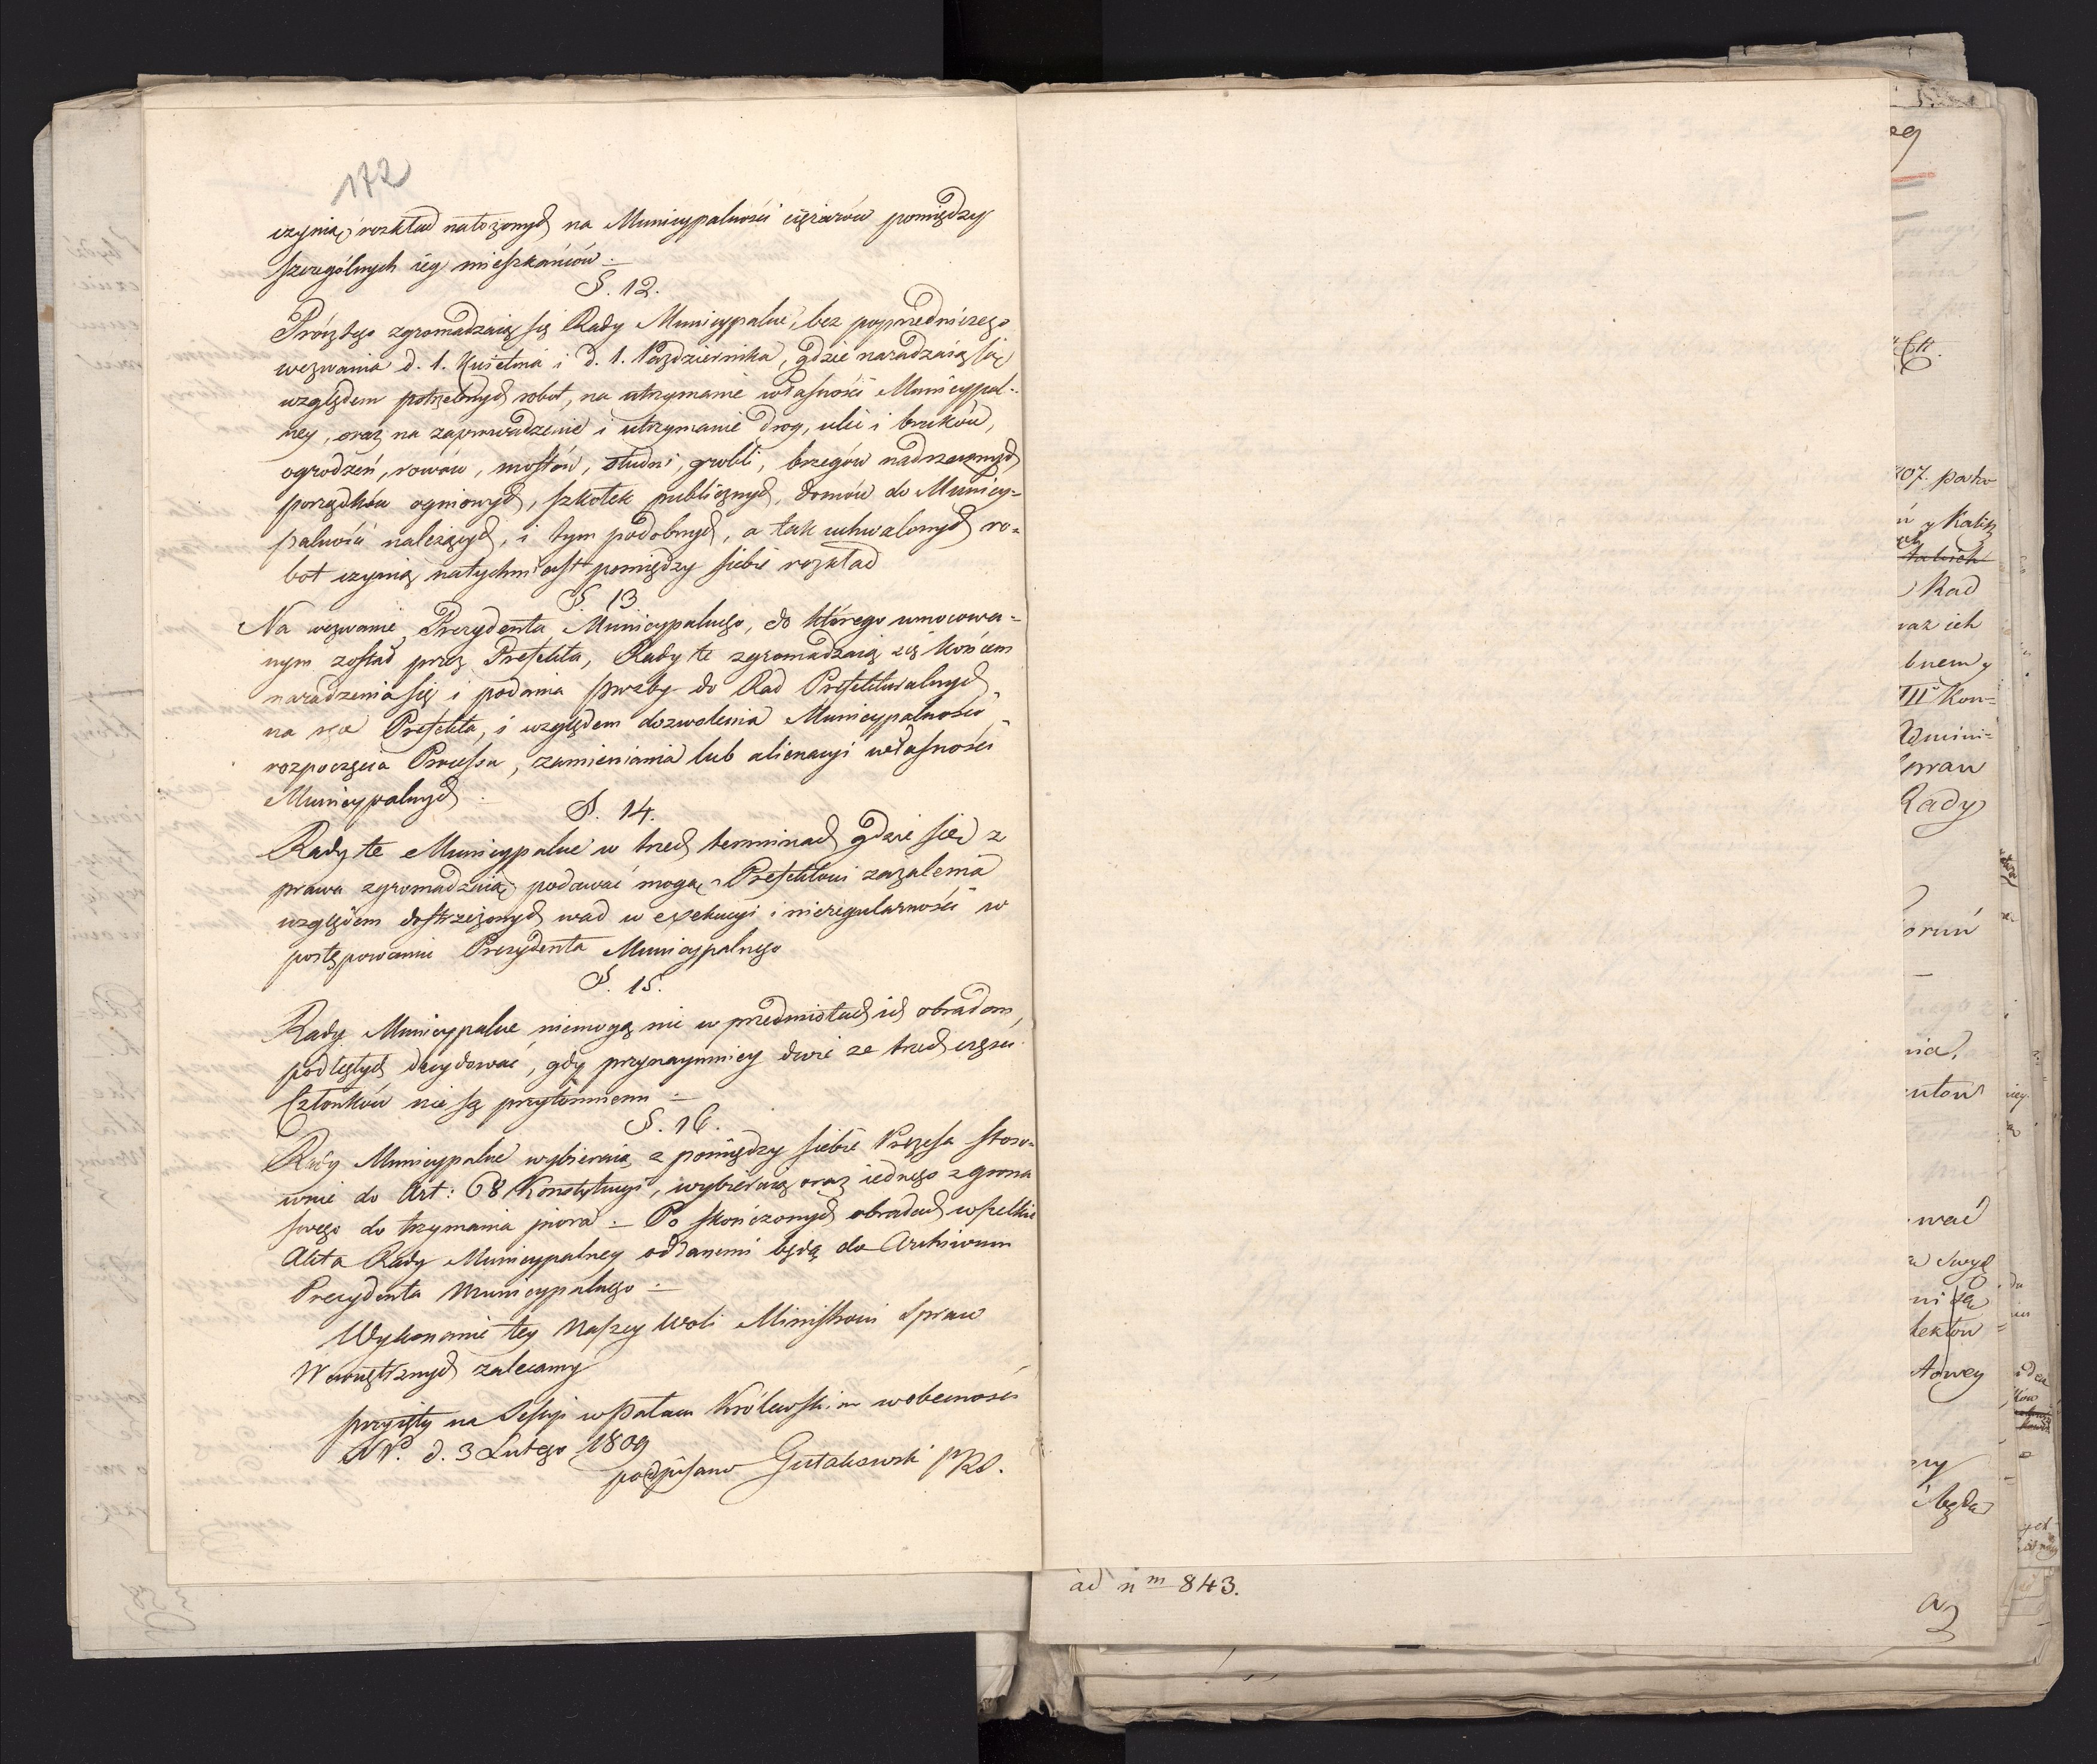 172
czynią rozkład nałożonych na Municypalności ciężarów pomiędzy
szczególnych iey mieszkańców. —
§. 12.
Prócz tego zgromadzaią się Rady Municypalne, bez poprzedniczego
wezwania d. 1. Kwietnia i d. 1. Października, gdzie naradzaią się
względem potrzebnych robot, na utrzymanie własności Municypal-
ney, oraz na zaprowadzenie i utrzymanie drog, ulic i bruków,
ogrodzeń, rowów, mostów, studni, grobli, brzegów nadrzecznych
porządków ogniowych, szkołek publicznych, domów do Municy=
palności należących, i tym podobnych, a tak uchwalonych ro=
bot czynią natychmiast pomiędzy siebie rozkład
§. 13
Na wezwanie Prezydenta Municypalnego, do którego umocowa=
nym został przez Prefekta, Rady te zgromadzaią się końcem
naradzenia się i podania prozby do Rad Prefekturalnych
na ręce Prefekta, i względem dozwolenia Municypalności
rozpoczęcia Processu, zamieniania lub alienacyi własności
Municypalnych. —
§. 14.
Rady te Municypalne w trzech terminach gdzie się z
prawa zgromadzaią podawać mogą Prefektowi zażalenia
względem dostrzeżonych wad w exekucyi i nieregularności w
postępowaniu Prezydenta Municypalnego
§. 15.
Rady Municypalne niemogą nic w przedmiotach ich obradom
podległych decydować, gdy przynaymniey dwie ze trzech części
Członków nie są przytomnemi. —
§. 16.
Rady Municypalne wybieraią z pomiędzy siebie Prezesa stoso-
wnie do Art: 68 Konstytucyi, wybieraią oraz iednego z grona
swego do trzymania pióra. — Po skończonych obradach wszelkie
Akta Rady Municypalney oddanemi będą do Archiwum
Prezydenta Municypalnego. —
Wykonanie tey Naszey Woli Ministrowi Spraw
Wewnętrznych zalecamy
przyięty na Sessyi w Pałacu Królewskim w obecności
NP. d. 3 Lutego 1809
podpisano Gutakowski PRS.
ad nm 843.